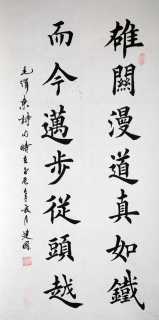 雄關漫道真如鐵
而今邁步從頭越
毛澤東詩句時在年夏月建國